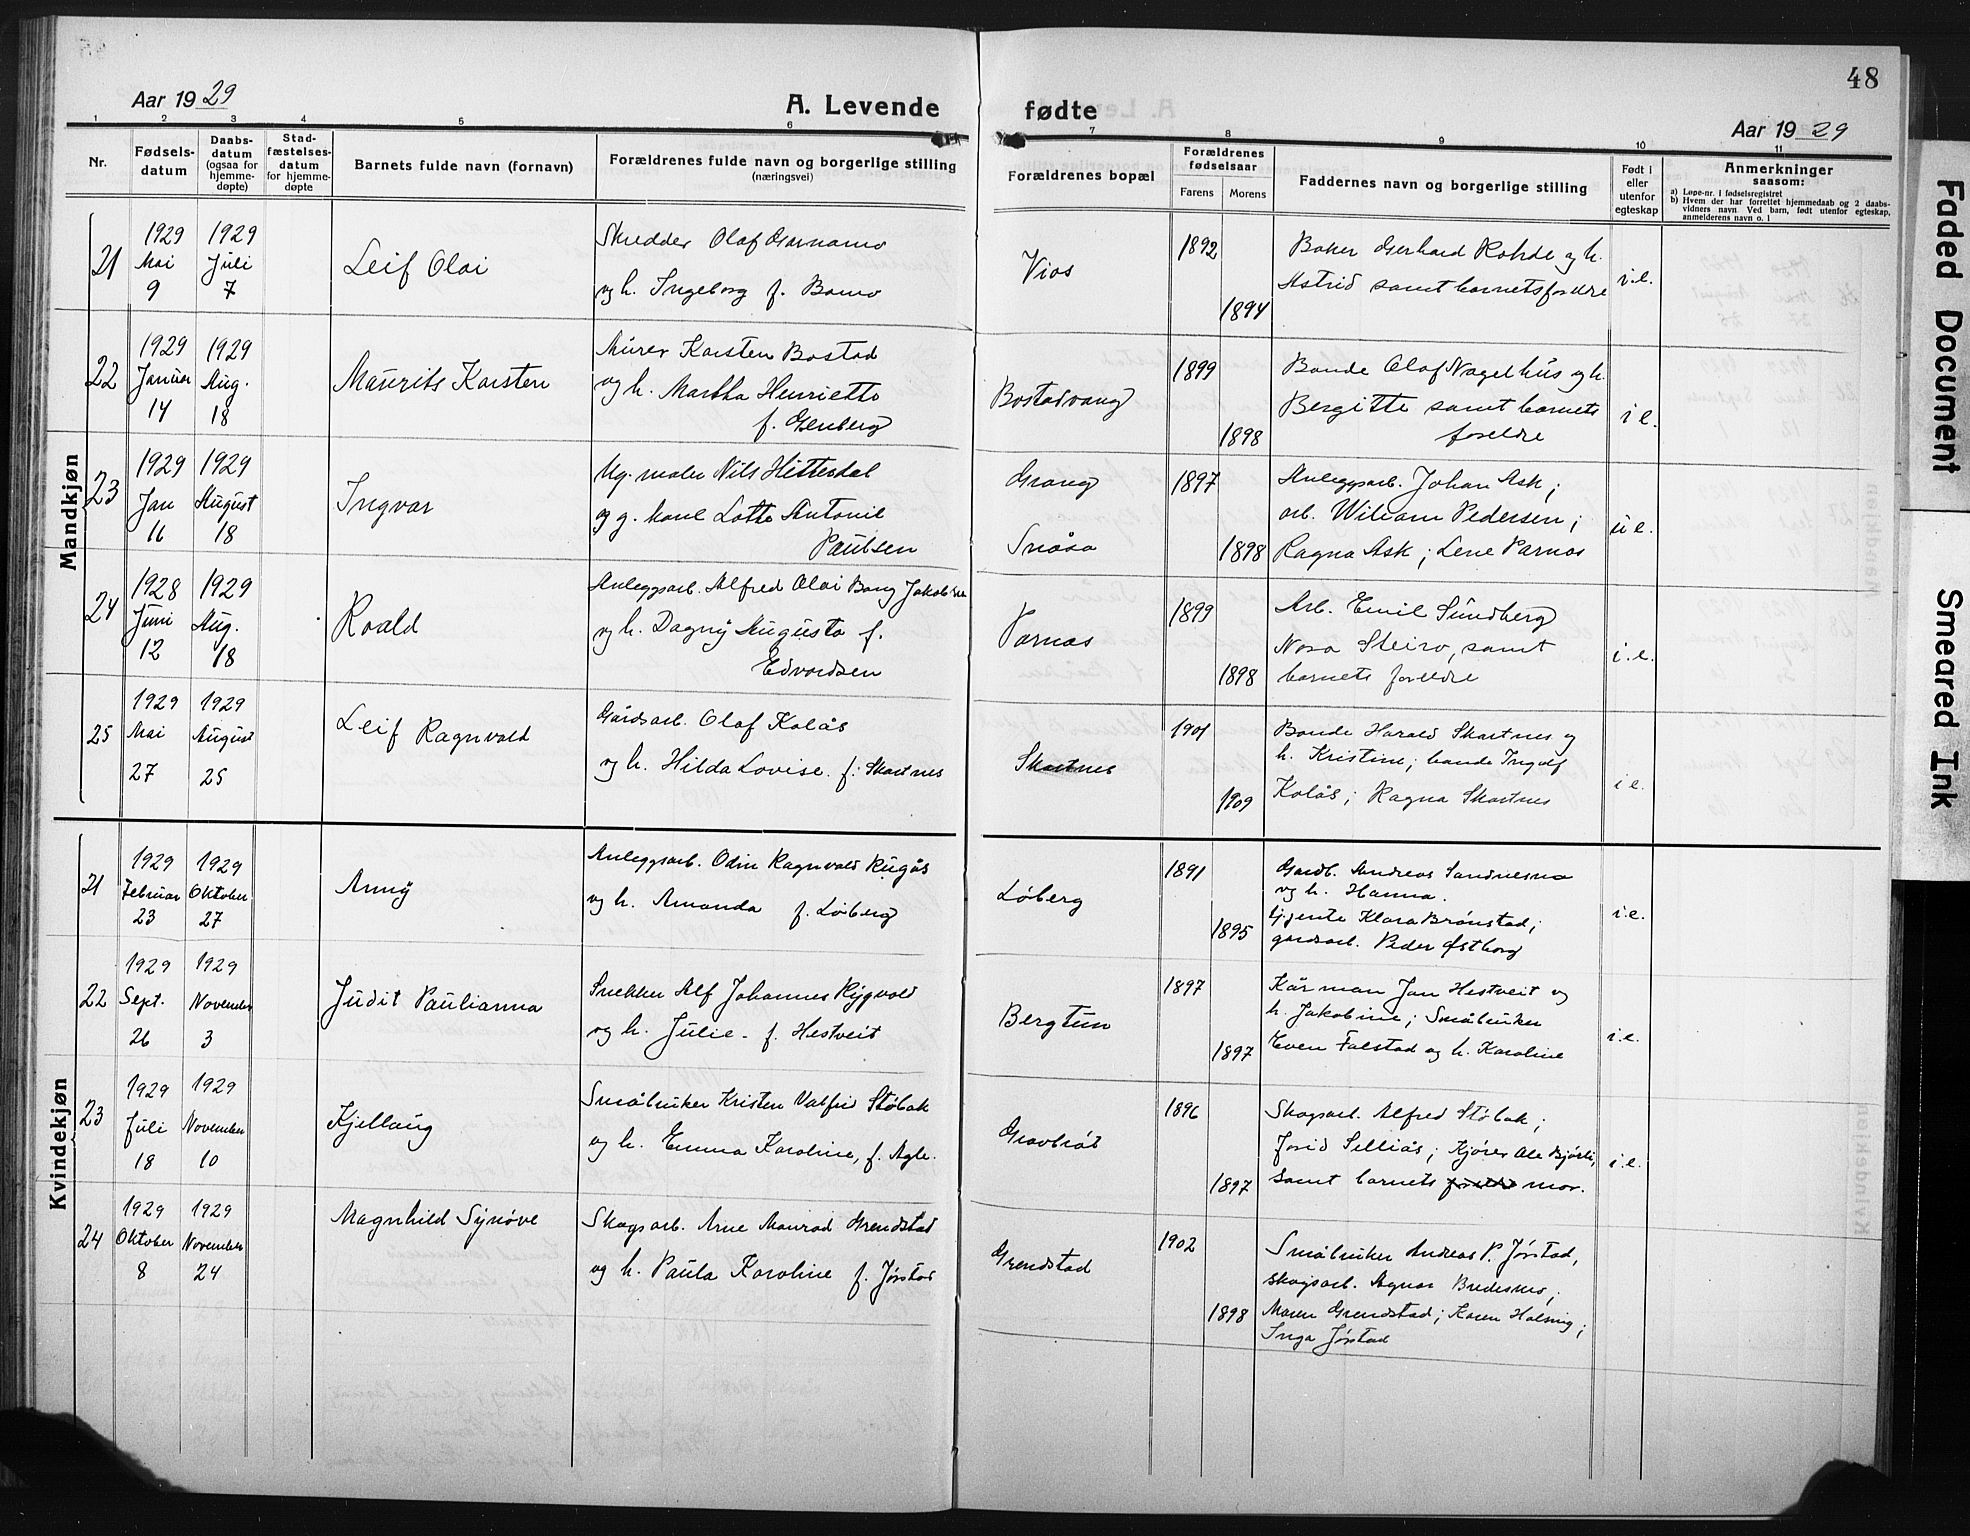 48
Aar 1929
A. Levende
fødte
Aar 1929
1 2 3 4 5 6 7 8 9 10 11
Nr.
Fødsels-
datum
Daabs-
datum
(ogsaa for
hjemme-
døpte)
Stad-
fæstelses-
datum
for hjemme-
døpte
Barnets fulde navn (fornavn)
Forældrenes fulde navn og borgerlige stilling
(næringsvei)
Forældrenes bopæl
Forældrenes
fødselsaar
Farens Morens
Faddernes navn og borgerlige stilling
Født i
eller
utenfor
egteskap
Anmerkninger
saasom:
a) Løpe-nr. i fødselsregistret
b) Hvem der har forrettet hjemmedaab og 2 daabs-
vidners navn Ved barn, født utenfor egteskap,
anmelderens navn o. l
Mandkjøn
21
1929
Mai
9
1929
Juli
7
Leif Olai
Skredder Olaf
og h. Ingeborg f.
Vios
1892
1894
Baker Gerhard Rohde og h.
Astrid samt barnets foreldre
i.e.
22
1929
Januar
14
1929
Aug.
18
Maurits Karsten
Murer Karsten Bostad
og h. Martha Henriette
f. Genberg
Bostadvang
1899
1898
Bonde Olaf Nagelhus og h.
Bergitte samt barnets
foreldre
i e.
23
1929
Jan
16
1929
August
18
Ingvar
Ug. maler Nils Hitterdal
og g. kone Lotte Antonie
Paulsen
Grong
Snåsa
1897
1898
Anleggsarb. Johan Ask;
arb. Wiliam Pedersen;
Ragna Ask; Lene Parnas
u e.
24
1928
Juni
12
1929
Aug.
18
Roald
Anleggsarb. Alfred Olai Bang Jakobsen
og h. Dagny Augusta f.
Edvardsen
Parnas
1899
1898
Arb. Emil Sundberg
Nora Steiro, samt
barnets foreldre
i.e.
25
1929
Mai
27
1929
August
25
Leif Ragnvald
Gårdsarb. Olaf Kolås
og h. Hilda Lovise. f. Skartnes
Skartnes
1901
1909
Bonde Harald Skartnes og
h. Kristine; bonde Ingolf
Kolås; Ragna Skartnes
i e.
Kvindekjøn
21
1929
Februar
23
1929
Oktober
27
Anny
Anleggsarb. Odin Ragnvald Rugås
og h. Amanda f. Løberg
Løberg
1891
1895
Gardb. Andreas Sandnesmo
og h. Hanna.
tjente Klara Brønstad;
gardsarb. Peder Østborg
i.e.
22
1929
Sept.
26
1929
November
3
Judit Paulianna
Snekker Alf Johannes Rygvold
og h. Julie. f. Hestveit
Bergtun
1897
1897
Kårman Jan Hestveit og
h. Jakobine; Småbruker
Even Falstad og h. Karoline
i.e.
23
1929
Juli
18
1929
November
10
Kjellaug
Småbruker Kristen Valfrid Støbak
og h. Emma Karoline, f. Agle.
Gravbråt
1896
1897
Skogsarb. Alfred Støbak;
Jorid Selliås; Kjører Ole Bjørli,
samt barnets foreldre mor.
i.e.
24
1929
Oktober
8
1929
November
24
Magnhild Synøve
Skogsarb. Arne Monrad Grendstad
og h. Paula Karoline f. Jørstad
Grendstad
1902
1898
Småbruker Andreas P. Jørstad,
skogsarb. Agnar Bredesmo;
Maren Grendstad; Karen Holming;
Inga Jørstad
Faded Document
Smeared Ink